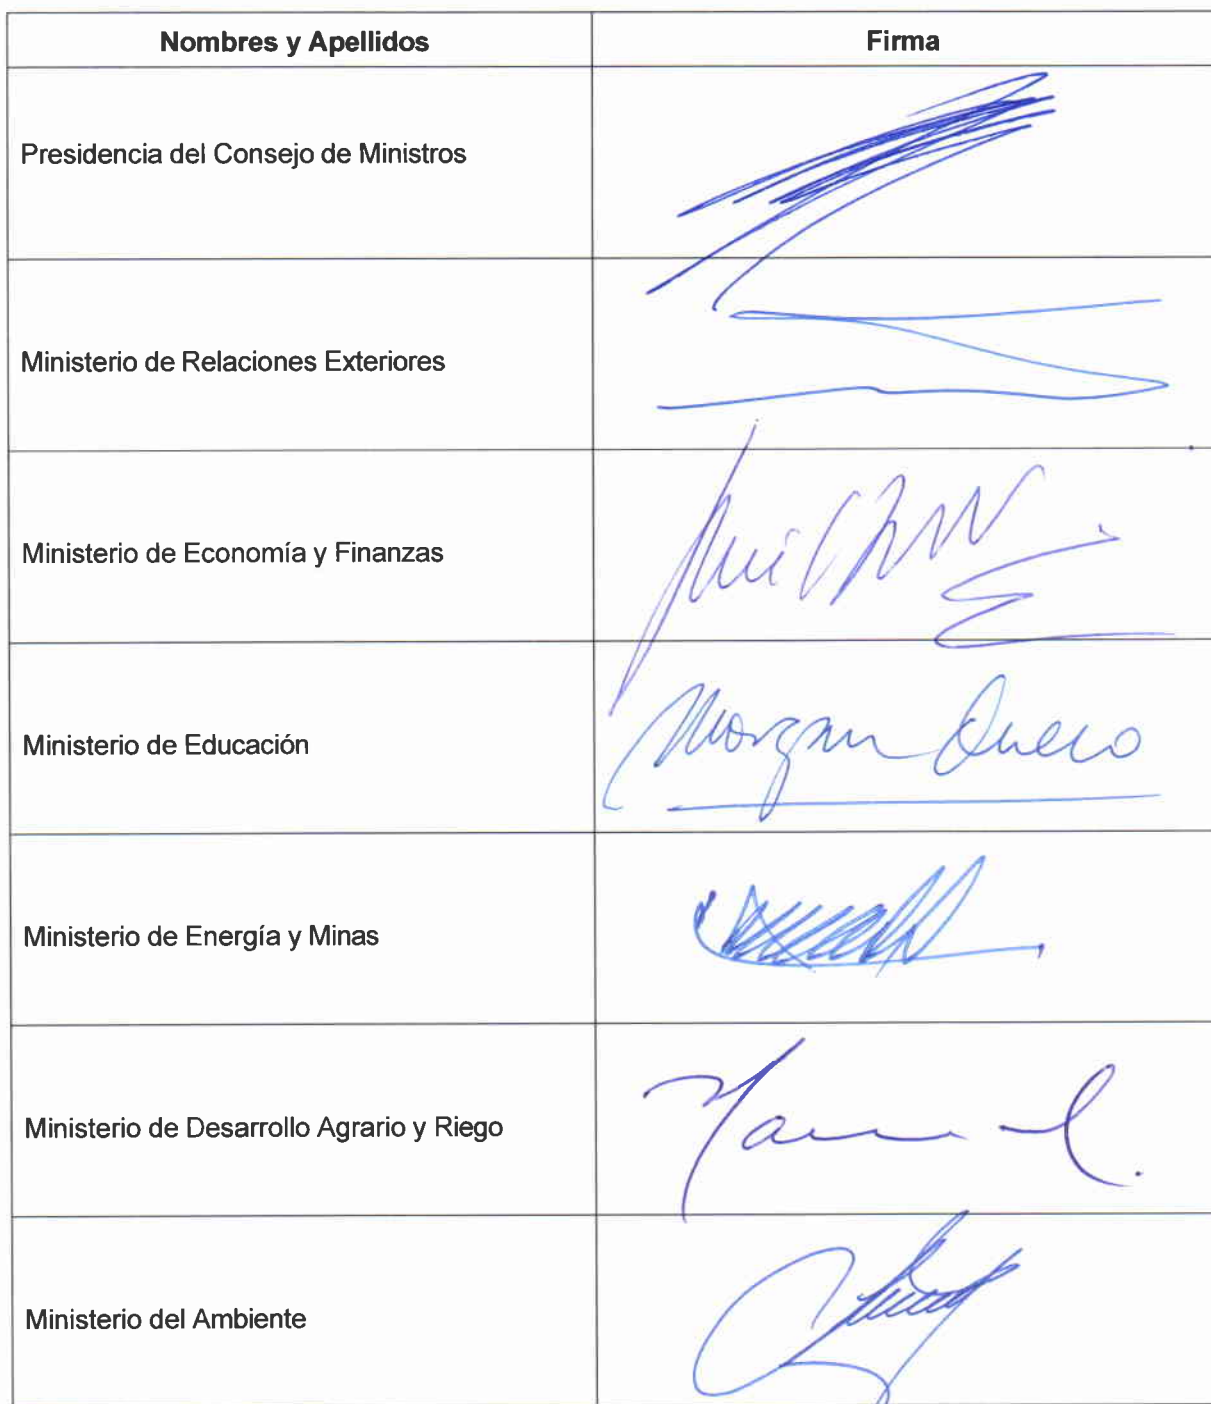 Nombres y Apellidos
Firma
Presidencia del Consejo de Ministros
Ministerio de Relaciones Exteriores
Ministerio de Economía y Finanzas
Ministerio de Educación
Morgan Quero
Ministerio de Energía y Minas
Ministerio de Desarrollo Agrario y Riego
Ministerio del Ambiente